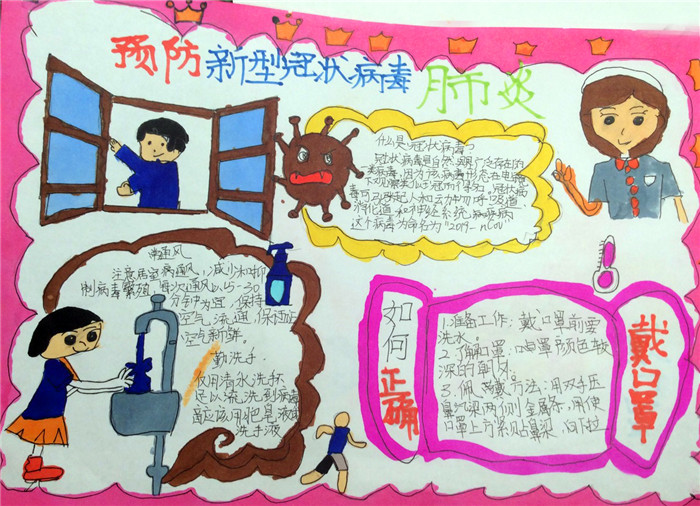 预防新型冠状病毒肺炎
什么是冠状病毒?
冠状病毒是自然界广泛存在的
一类病毒,因为该病毒形态在电镜
下观察类似王冠而得名,冠状病
毒可引起人和动物呼吸道、
消化道和神经系统疾病
这个病毒为命名为"2019-nCoV
常通风
注意居室病通风,减少和抑
制病毒繁殖,每次通风以15-30
分钟为宜,保持
空气流通,保证
空气新鲜。
勤洗手
仅用清水洗
足以洗到病毒
应该用肥皂液
洗手液
如何正确戴口罩
1.准备工作:戴口罩前要
洗水。
2.口罩颜色较
深的
3.佩戴方法:用双手压
鼻梁两侧金属条,用使
口罩上方紧贴鼻梁,向下拉